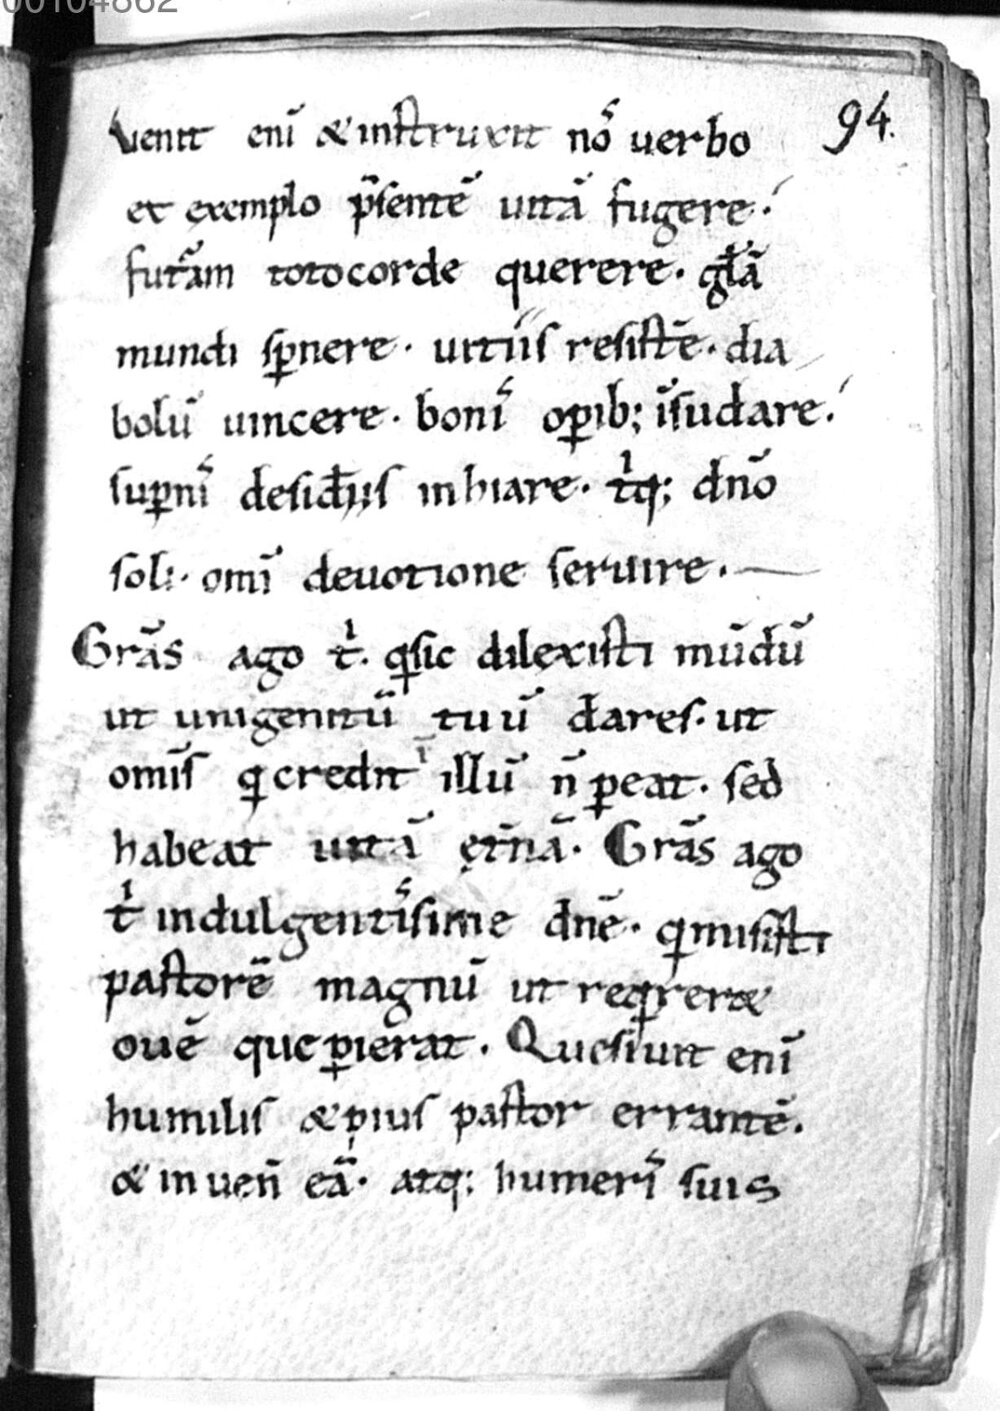 00104862
94.
Venit enī & instruxit nōˢ verbo
et exemplo p̄sentē uitā fugere.
futāram totocorde querere. gl̄ā
mundi sp̱nere. uitiis resistē. dia
bolū uincere. bonīˢ op̱ib; īsudare.
sup̱nīˢ desid̄iis inhiare. tⁱq; dn̄o
soli. omī deuotione seruire.
Grās ago tⁱ. qͥ sic dilexisti mūdū
ut unigenitū tuū dares. ut
omīs qͥ credit ī illū n̄ p̱eat. sed
habeat uitā ęt̄nā. Grās ago
tⁱ indulgentīˢsime dn̄e. qͥ misisti
pastorē magnū ut reqͥrer&
ouē que p̱ierat. Quesiuit enī
humilis & pius pastor errantē.
& inuen̄ eā. atq; humerīˢ suis